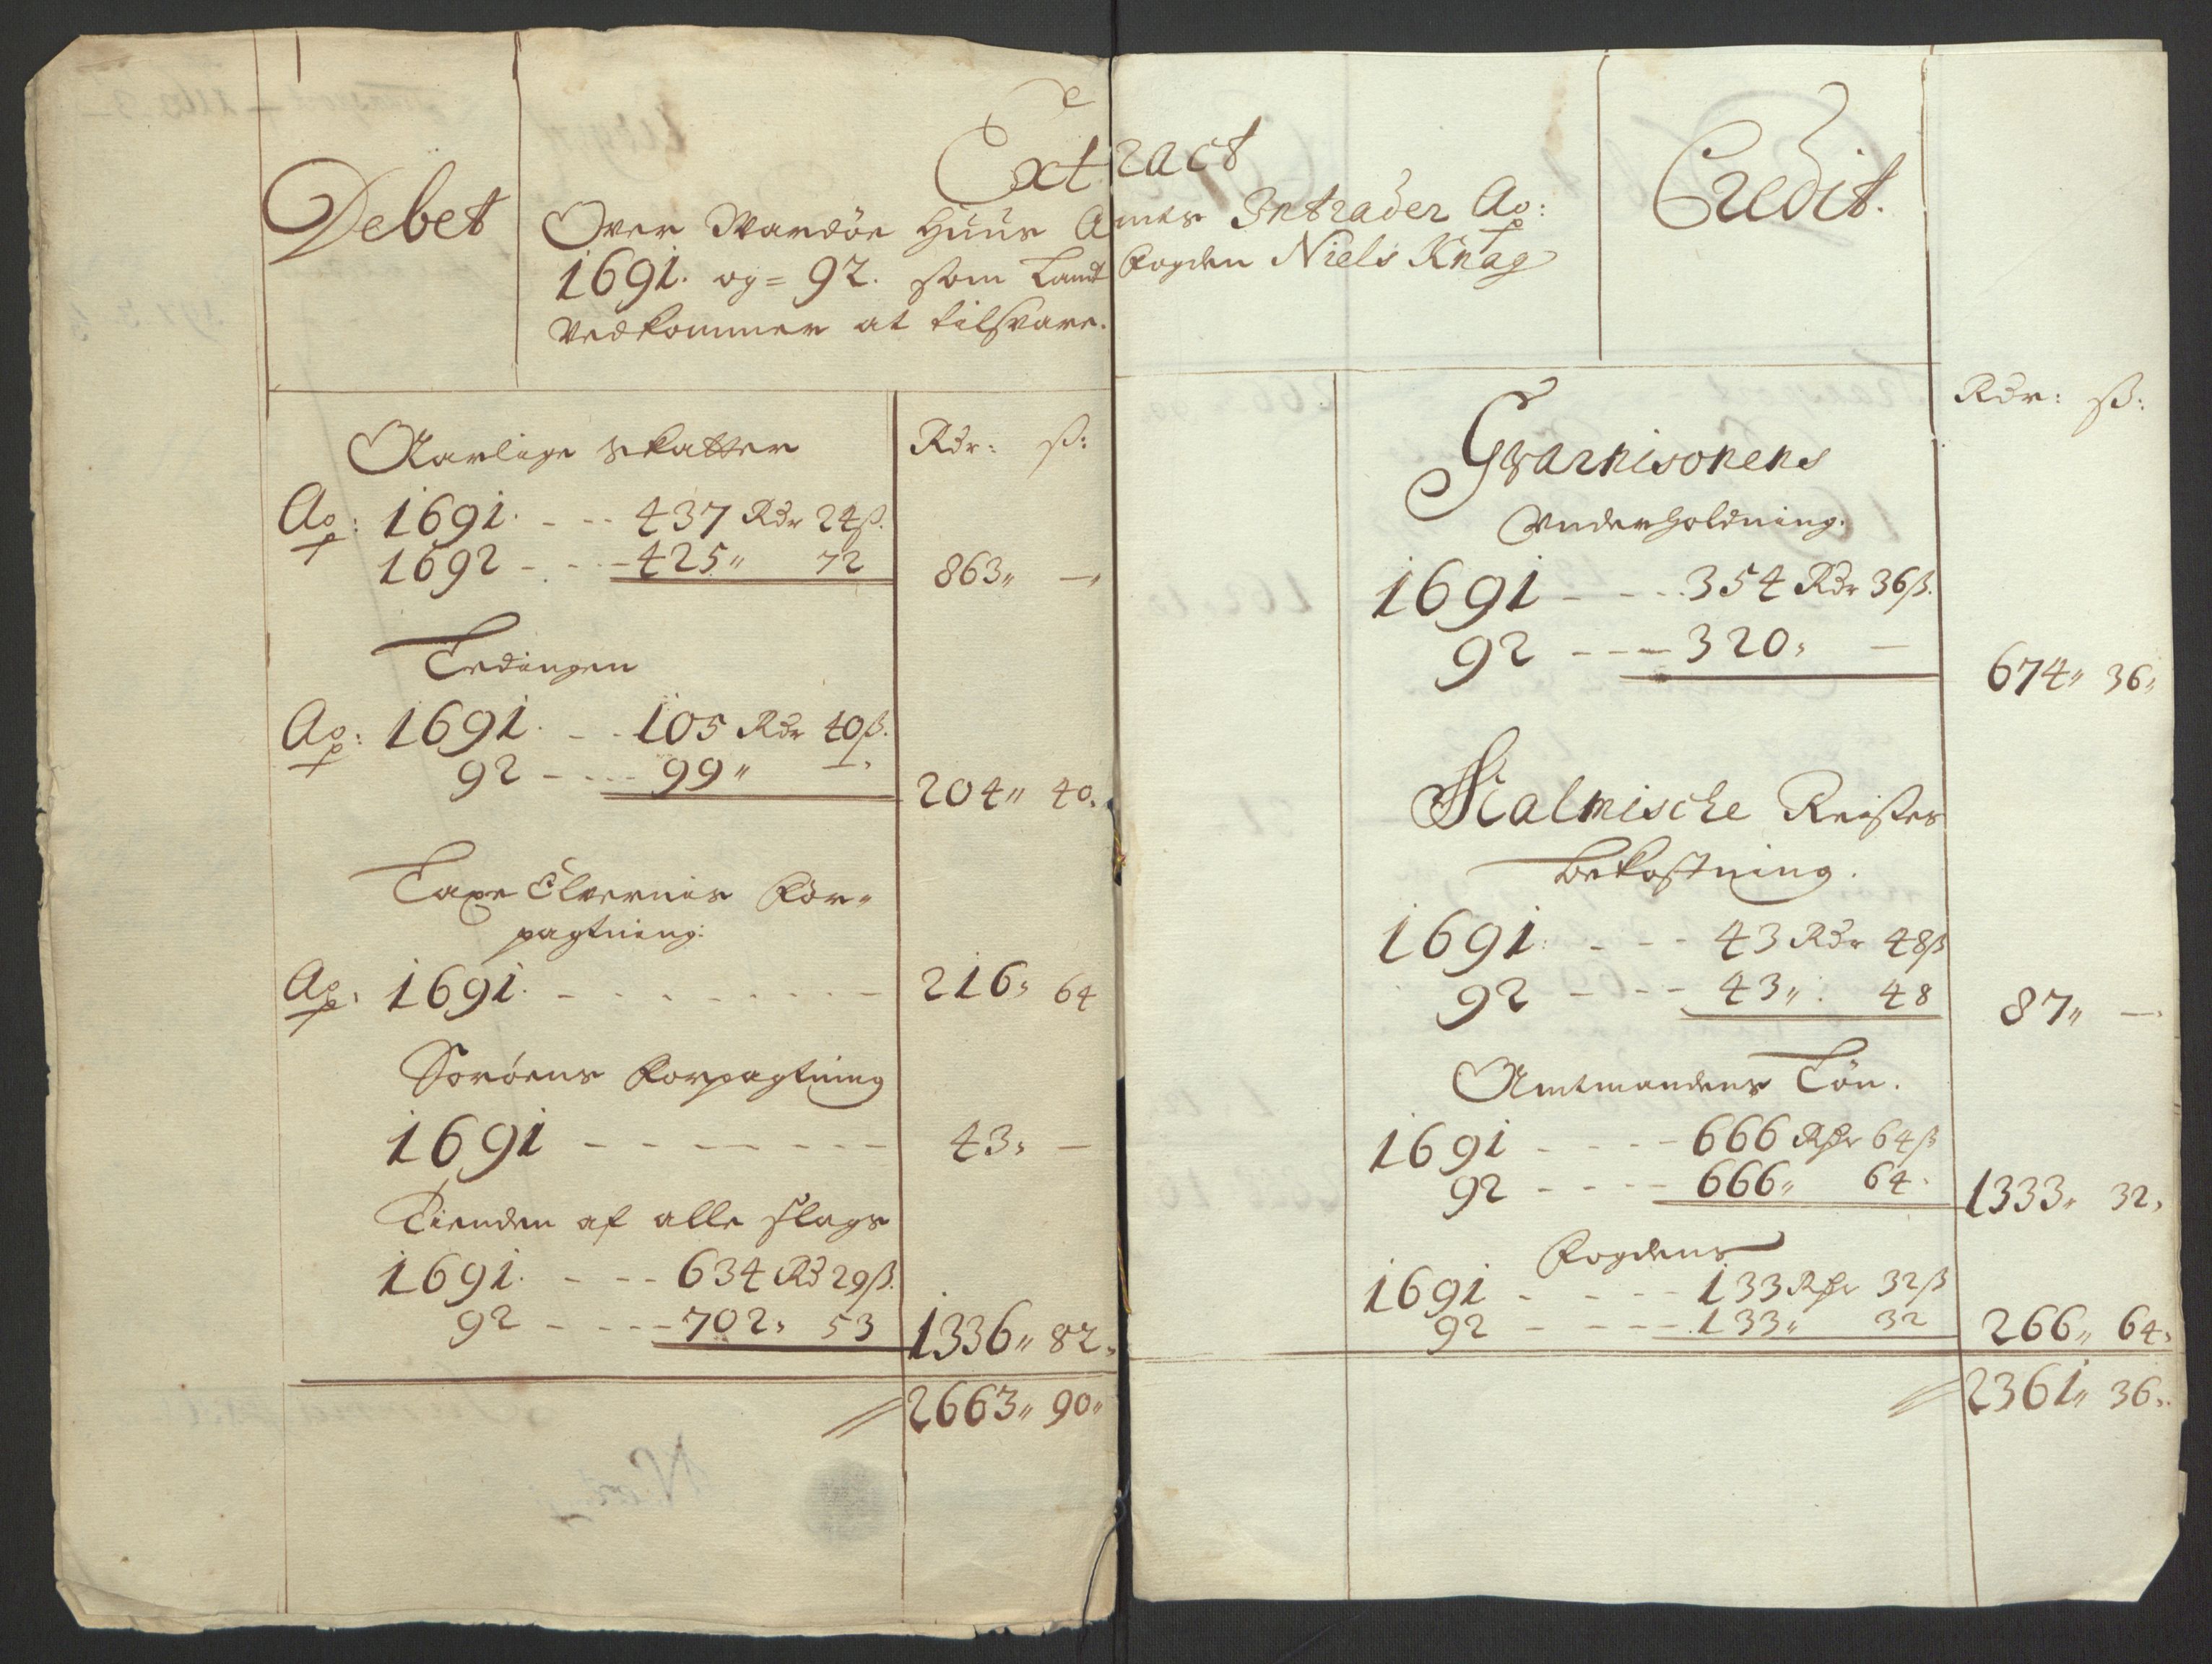 Debet
Extract
Over Wardøe Huus Amts Intrader Ao:
1691. og = 92. som Landfogden Niels Knag
vedkommer at tilsvare.
Credit.
Aarlige skatter
Rdr: ß:
Ao: 1691. - - - 437 Rdr 24ß.
1692 - - - 425„ 72
863„ —„
Ledingen
Ao: 1691. - - 105 Rdr 40ß.
92 - - - - 99„ —„
204„ 40„
Laxe Elvernis For-
pagtning:
Ao: 1691. - - - - - - - - 216„ 64
Sorøens Forpagtning
1691 - - - - - - - 43„ —
Tienden af alle slags
1691. - - - 634 Rd 29ß.
92 - - - - 702„ 53
1336„ 82„
2663„ 90„
Rdr: ß:
Gvarnisonens
Underholdning.
1691 - - - - 354 Rdr 36ß.
92 - - - 320„ —
674„ 36„
Malmische Reises
bekostning.
1691: - - - 43 Rdr 48ß
92 - - - 43„ 48
87„ —„
Amtmandens Løn.
1691 - - - - 666 Rdr 64ß
92 - - - - 666„ 64.
1333„ 32„
Fogdens
1691 - - - - 133 Rdr 32ß
92 - - - - 133„ 32
266„ 64„
2361„ 36„